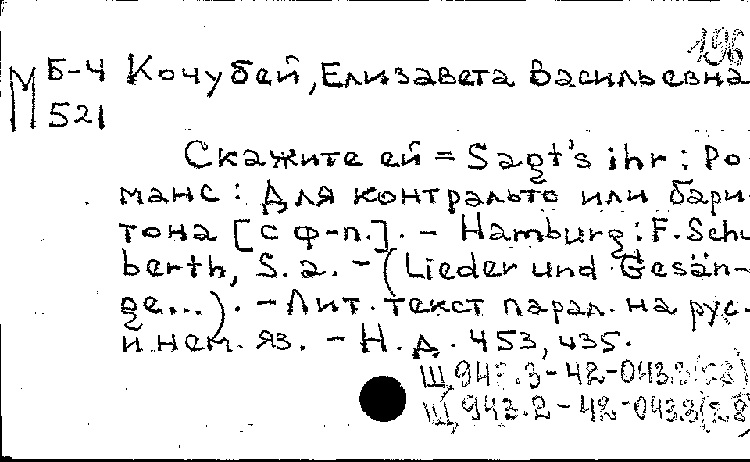 196
М Б-4 Кочубей, Елизавета Васильевна
521
Скажите ей = Sagt's ihr : Ро-
манс : Для контральто или бари-
тона [с ф-п.]. – Hamburg : F. Schu-
berth, S. a. – (Lieder und Gesän-
ge...). – Лит. текст парал. на рус.
и нем. яз. – Н. д. 453, 435.
Щ 943.2-42-043.3(28)